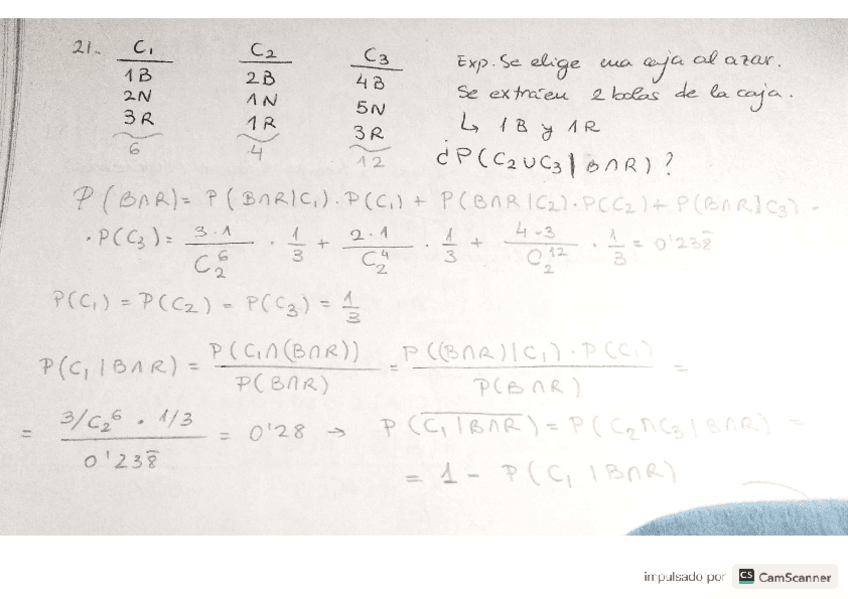 21.- C₁ C₂ C₃
1B 2B 4B
2N 1N 5N
3R 1R 3R
6 4 12
Exp. Se elige una caja al azar.
Se extraen 2 bolas de la caja.
↳ 1B y 1R
¿P(C₂∪C₃|B∩R)?
P(B∩R)= P(B∩R|C₁).P(C₁) + P(B∩R|C₂).P(C₂)+ P(B∩R|C₃)·
·P(C₃)= 3·1/C₂⁶ · 1/3 + 2·1/C₂⁴ · 1/3 + 4·3/C₂¹² · 1/3 = 0'238̄
P(C₁) = P(C₂) = P(C₃) = 1/3
P(C₁|B∩R) = P(C₁∩(B∩R))/P(B∩R) = P((B∩R)|C₁)·P(C₁)/P(B∩R) =
= 3/C₂⁶ · 1/3 / 0'238̄ = 0'28 → P(C̅₁̅ ̅|̅B̅∩̅R̅) = P(C₂∩C₃|B∩R) =
= 1 - P(C₁|B∩R)
impulsado por CS CamScanner